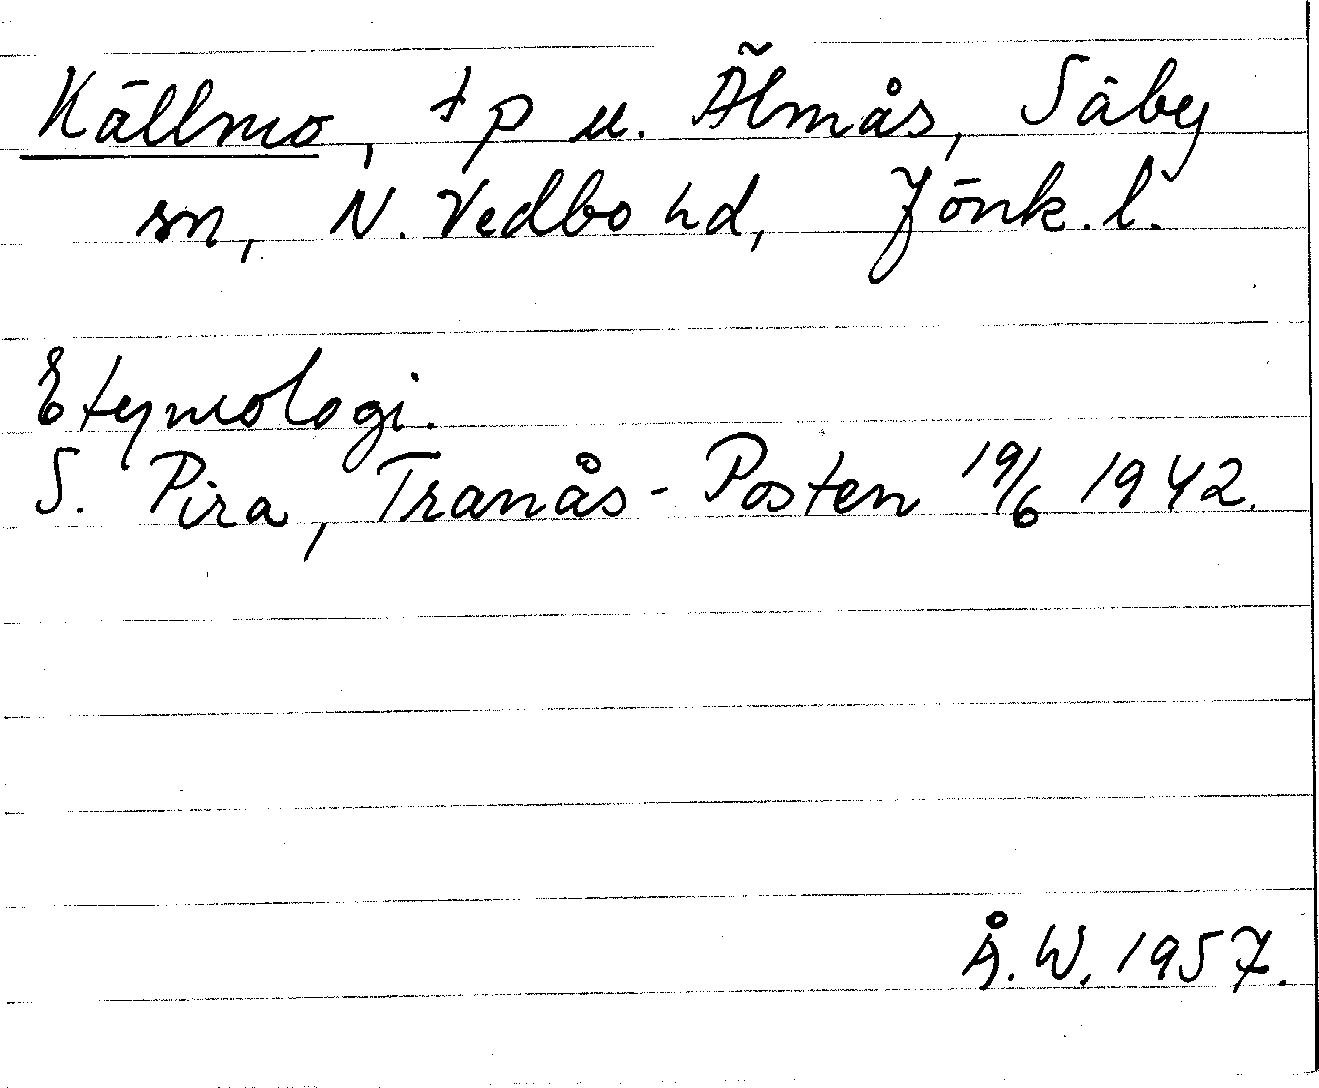 Källmo, tp u. Älmås, Säby
sn, N. Vedbo hd, Jönk. l.
Etymologi.
S. Pira, Tranås-Posten 19/6 1942.
Å. W. 1957.